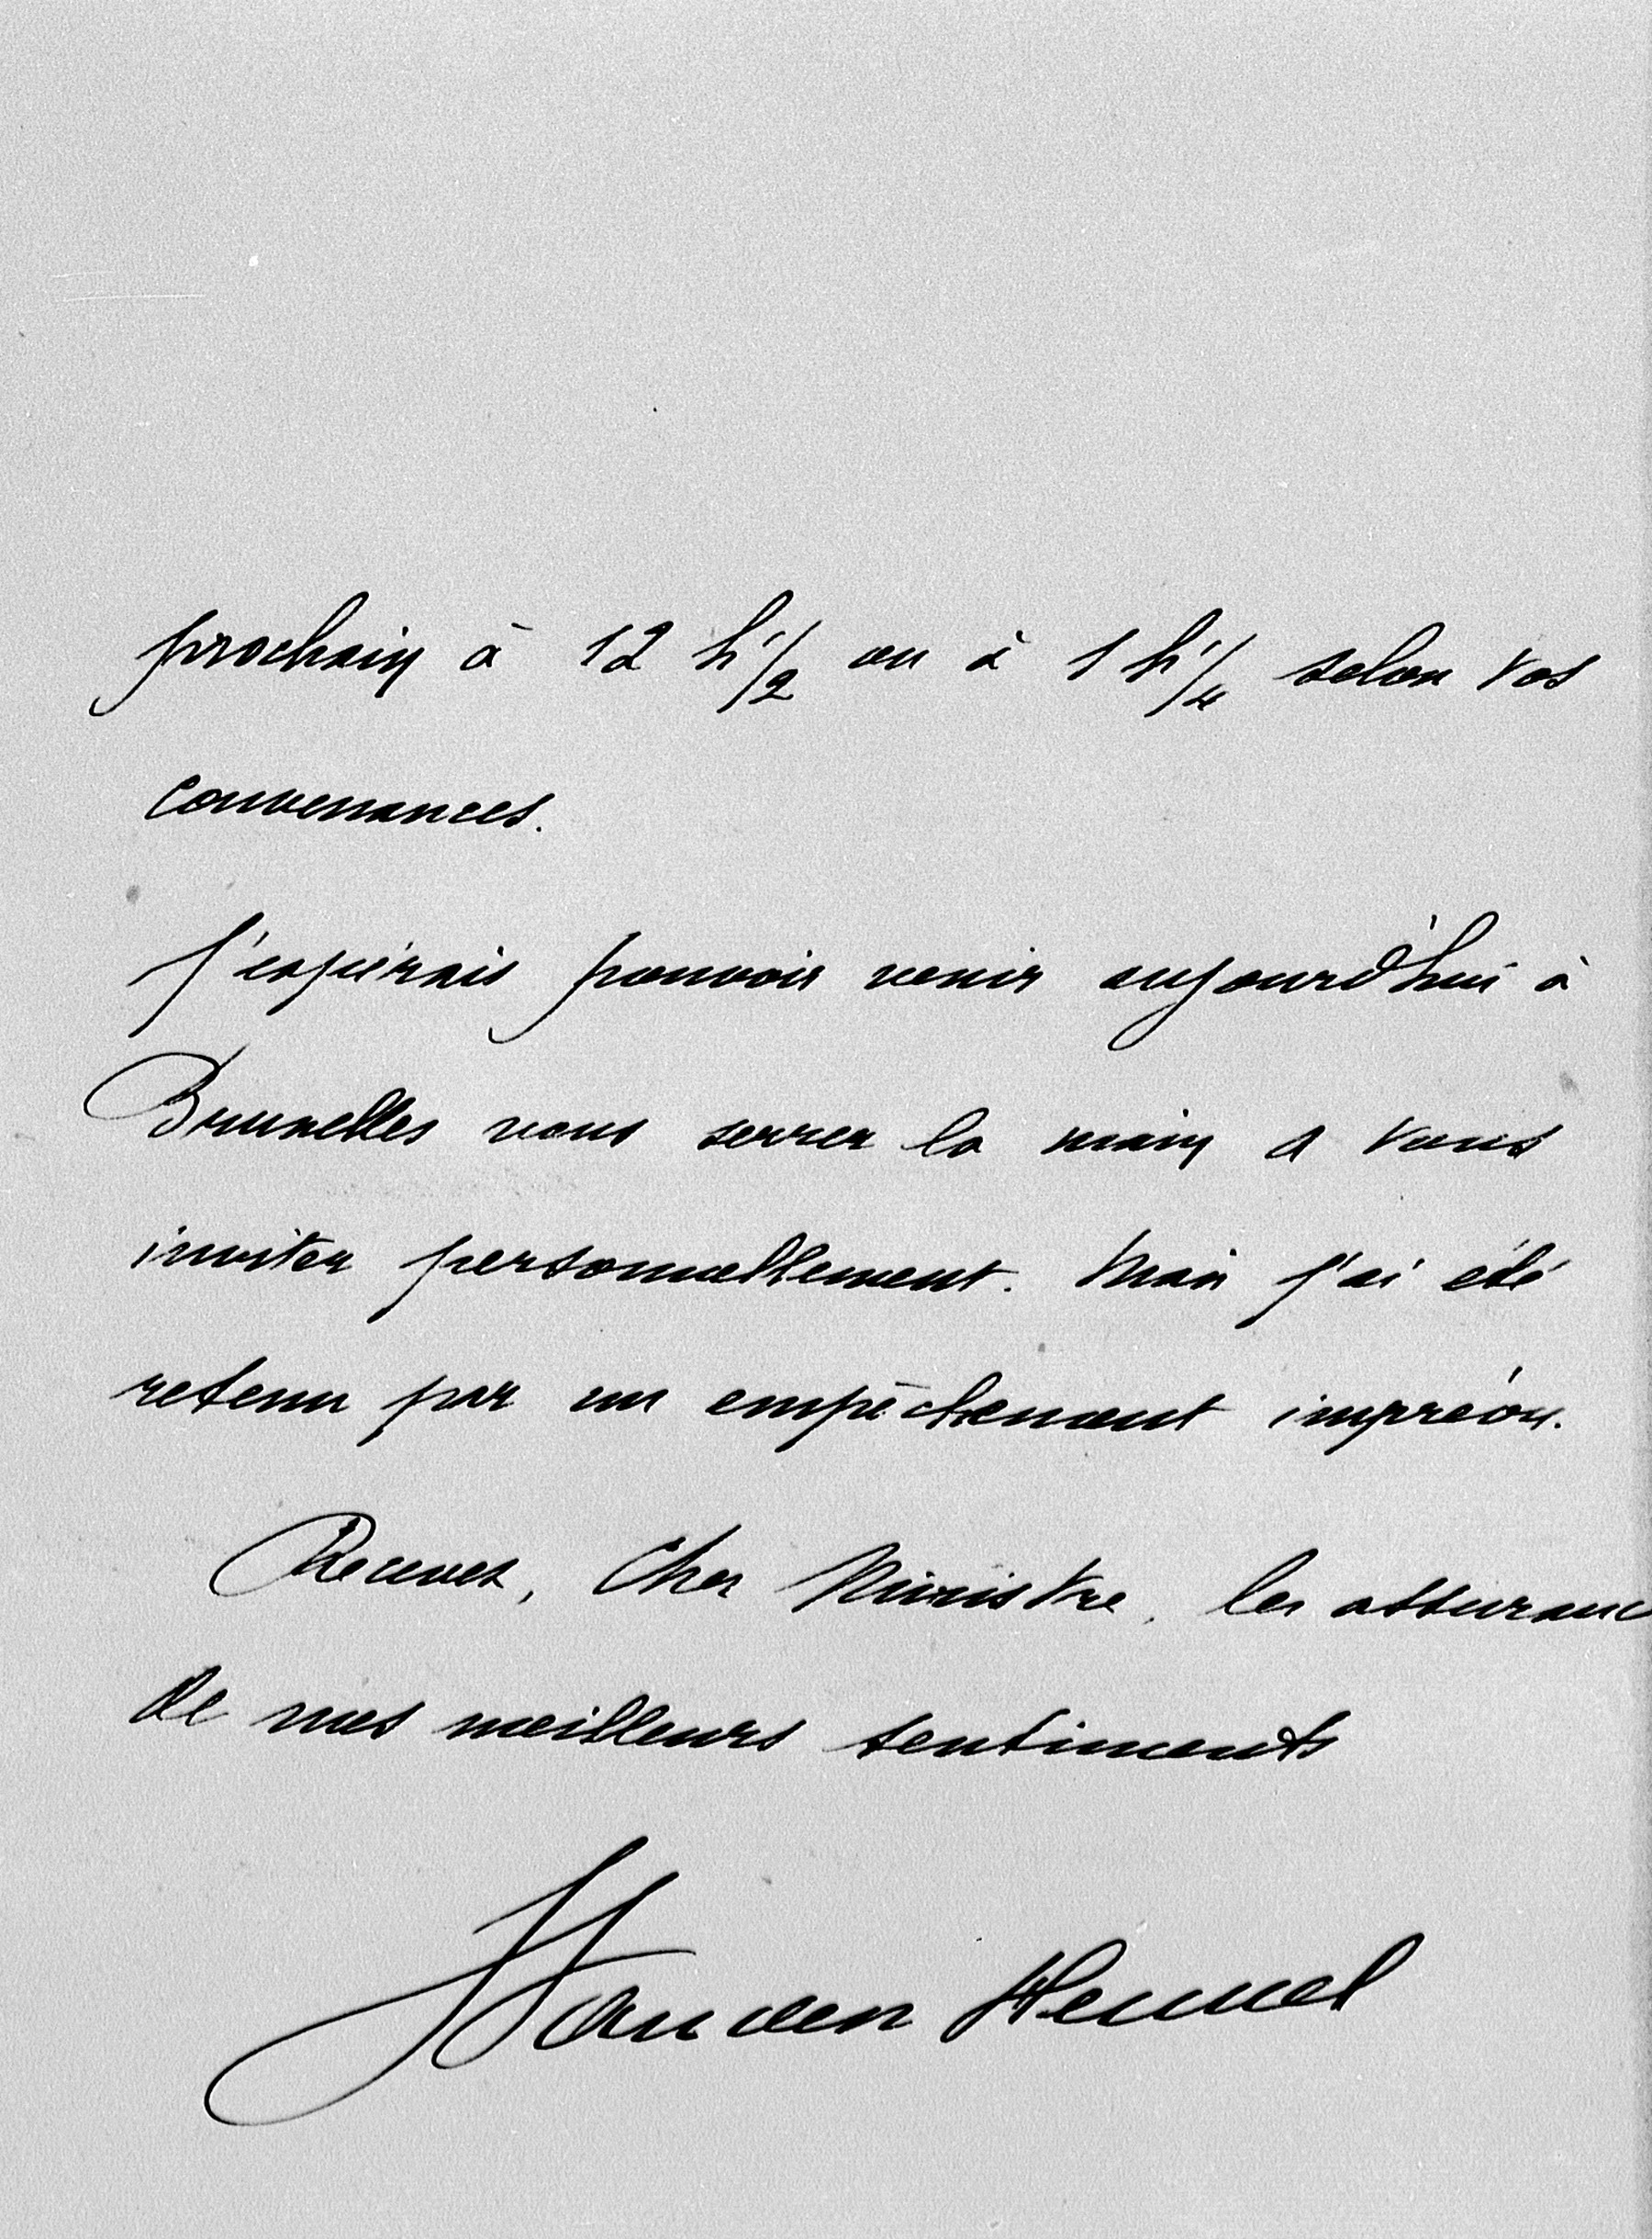 prochain à 12 h 1/2 ou à 1 h 1/4 selon vos
convenances.
J'espérais pouvoir venir aujourd'hui à
Bruxelles vous serrer la main & vous
inviter personnellement. Mais j'ai été
retenu par un empêchement imprévu.
Recevez, Cher Ministre, les assuranc
de mes meilleurs sentiments
Vanden Heuvel